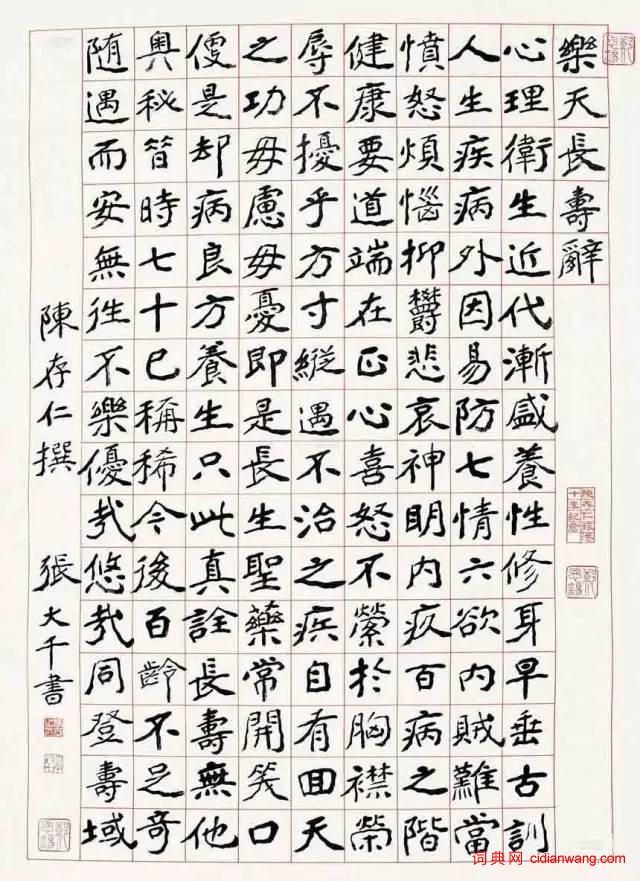 樂天長壽辭
心理衛生近代漸盛養性修身早垂古訓
人生疾病外因易防七情六欲內賊難當
憤怒煩惱抑欝悲哀神明內疚百病之階
健康要道端在正心喜怒不縈於胸襟榮
辱不擾乎方寸縱遇不治之疾自有回天
之功毋慮毋憂即是長生聖藥常開笑口
便是却病良方養生只此真詮長壽無他
奧秘昔時七十已稱稀今後百齡不足奇
随遇而安無往不樂優哉悠哉同登壽域
陳存仁撰 張大千書
词典网 cidianwang.com